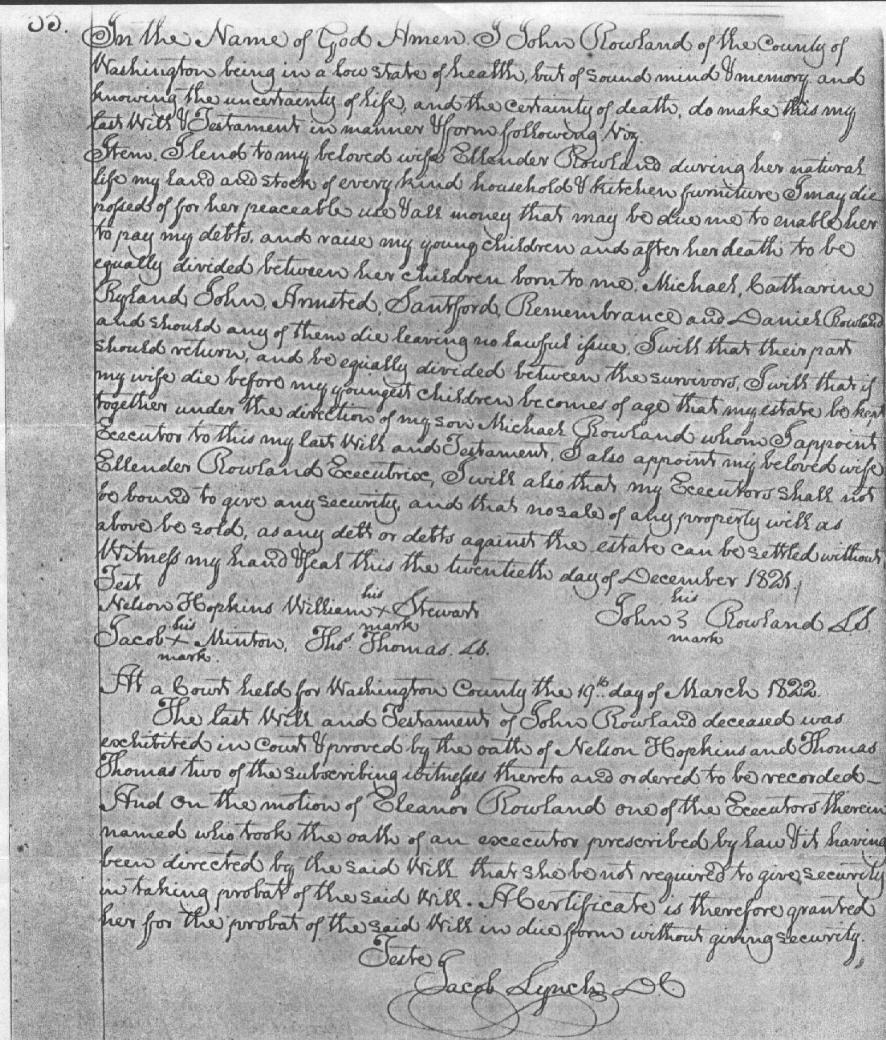 In the Name of God Amen. I John Rowland of the County of
Washington being in a low state of health, but of sound mind & memory, and
knowing the uncertainty of life, and the certainty of death, do make this my
last Will & Testament in manner & form following Viz
Item. I lend to my beloved wife Ellender Rowland during her natural
life my land and stock of every kind household & kitchen furniture I may die
possed of for her peaceable use & all money that may be due me to enable her
to pay my debts, and raise my young children and after her death to be
equally divided between her children born to me, Michael, Catharine
Ryland John, Armsted, Santford, Remembrance and Daniel Rowland
and should any of them die leaving no lawful issue, I will that their part
should return, and be equally divided between the survivors, I will that if
my wife die before my youngest children becomes of age that my estate be kept
together under the direction of my son Michael Rowland whom I appoint
Executor to this my last Will and Testament, I also appoint my beloved wife
Ellender Rowland Executrix, I will also that my Executors shall not
be bound to give any security, and that no sale of any property will as
above be sold, as any debt or debts against the estate can be settled without
Witness my hand & seal this the twentieth day of December 1821
Test
his
his
Nelson Hopkins William x Stewart
John 3 Rowland LS
mark
mark
his
Jacob x Minton, Thos. Thomas. LS.
mark.
At a Court held for Washington County the 19th day of March 1822.
The last Will and Testament of John Rowland deceased was
exhibited in Court & proved by the oath of Nelson Hopkins and Thomas
Thomas two of the subscribing witnesses thereto and ordered to be recorded
And on the motion of Eleanor Rowland one of the Executors therein
named who took the oath of an executor prescribed by law & it having
been directed by the said Will that she be not required to give security
in taking probat of the said Will. A Certificate is therefore granted
her for the probat of the said Will in due form without giving security.
Teste
Jacob Lynch DC